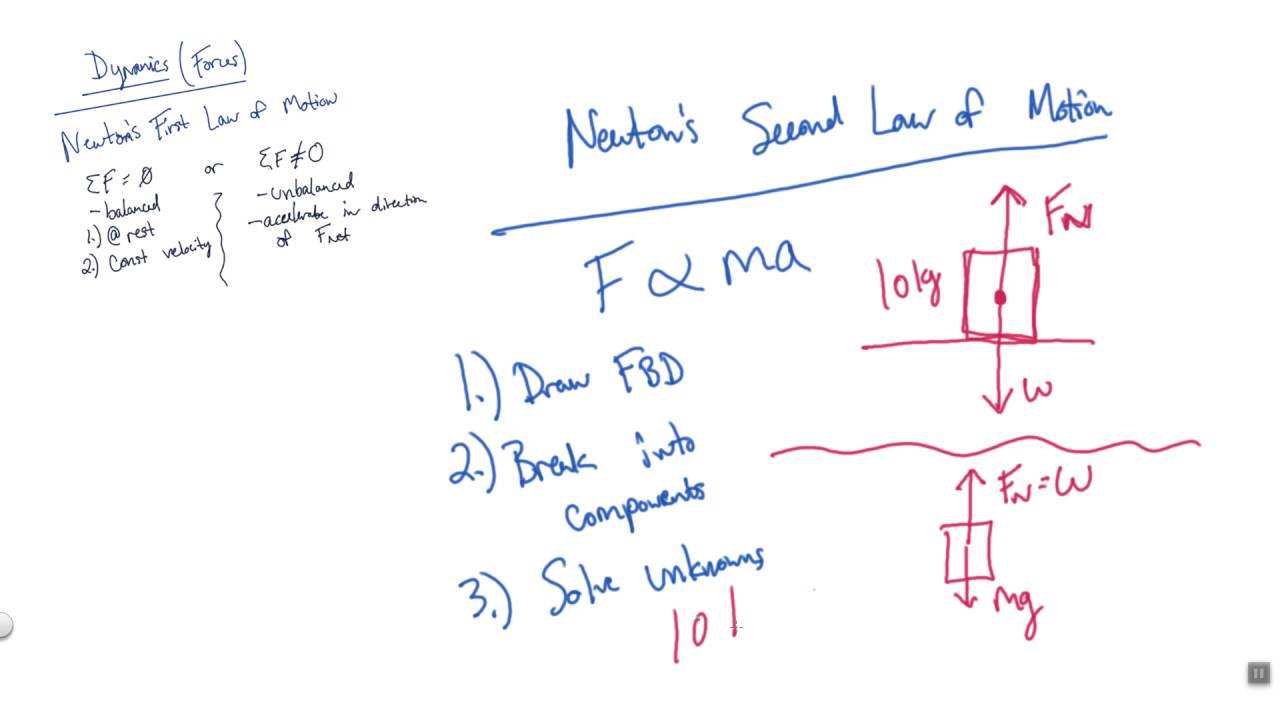 Dynamics (Forces)
Newton's First Law of Motion
ΣF = 0 or ΣF ≠ 0
- balanced
1.) @ rest
2.) Const velocity
- Unbalanced
- accelerate in direction
of Fnet
Newton's Second Law of Motion
F ∝ ma
1.) Draw FBD
2.) Break into
Components
3.) Solve unknowns
10
FN
10kg
W
FN = W
mg